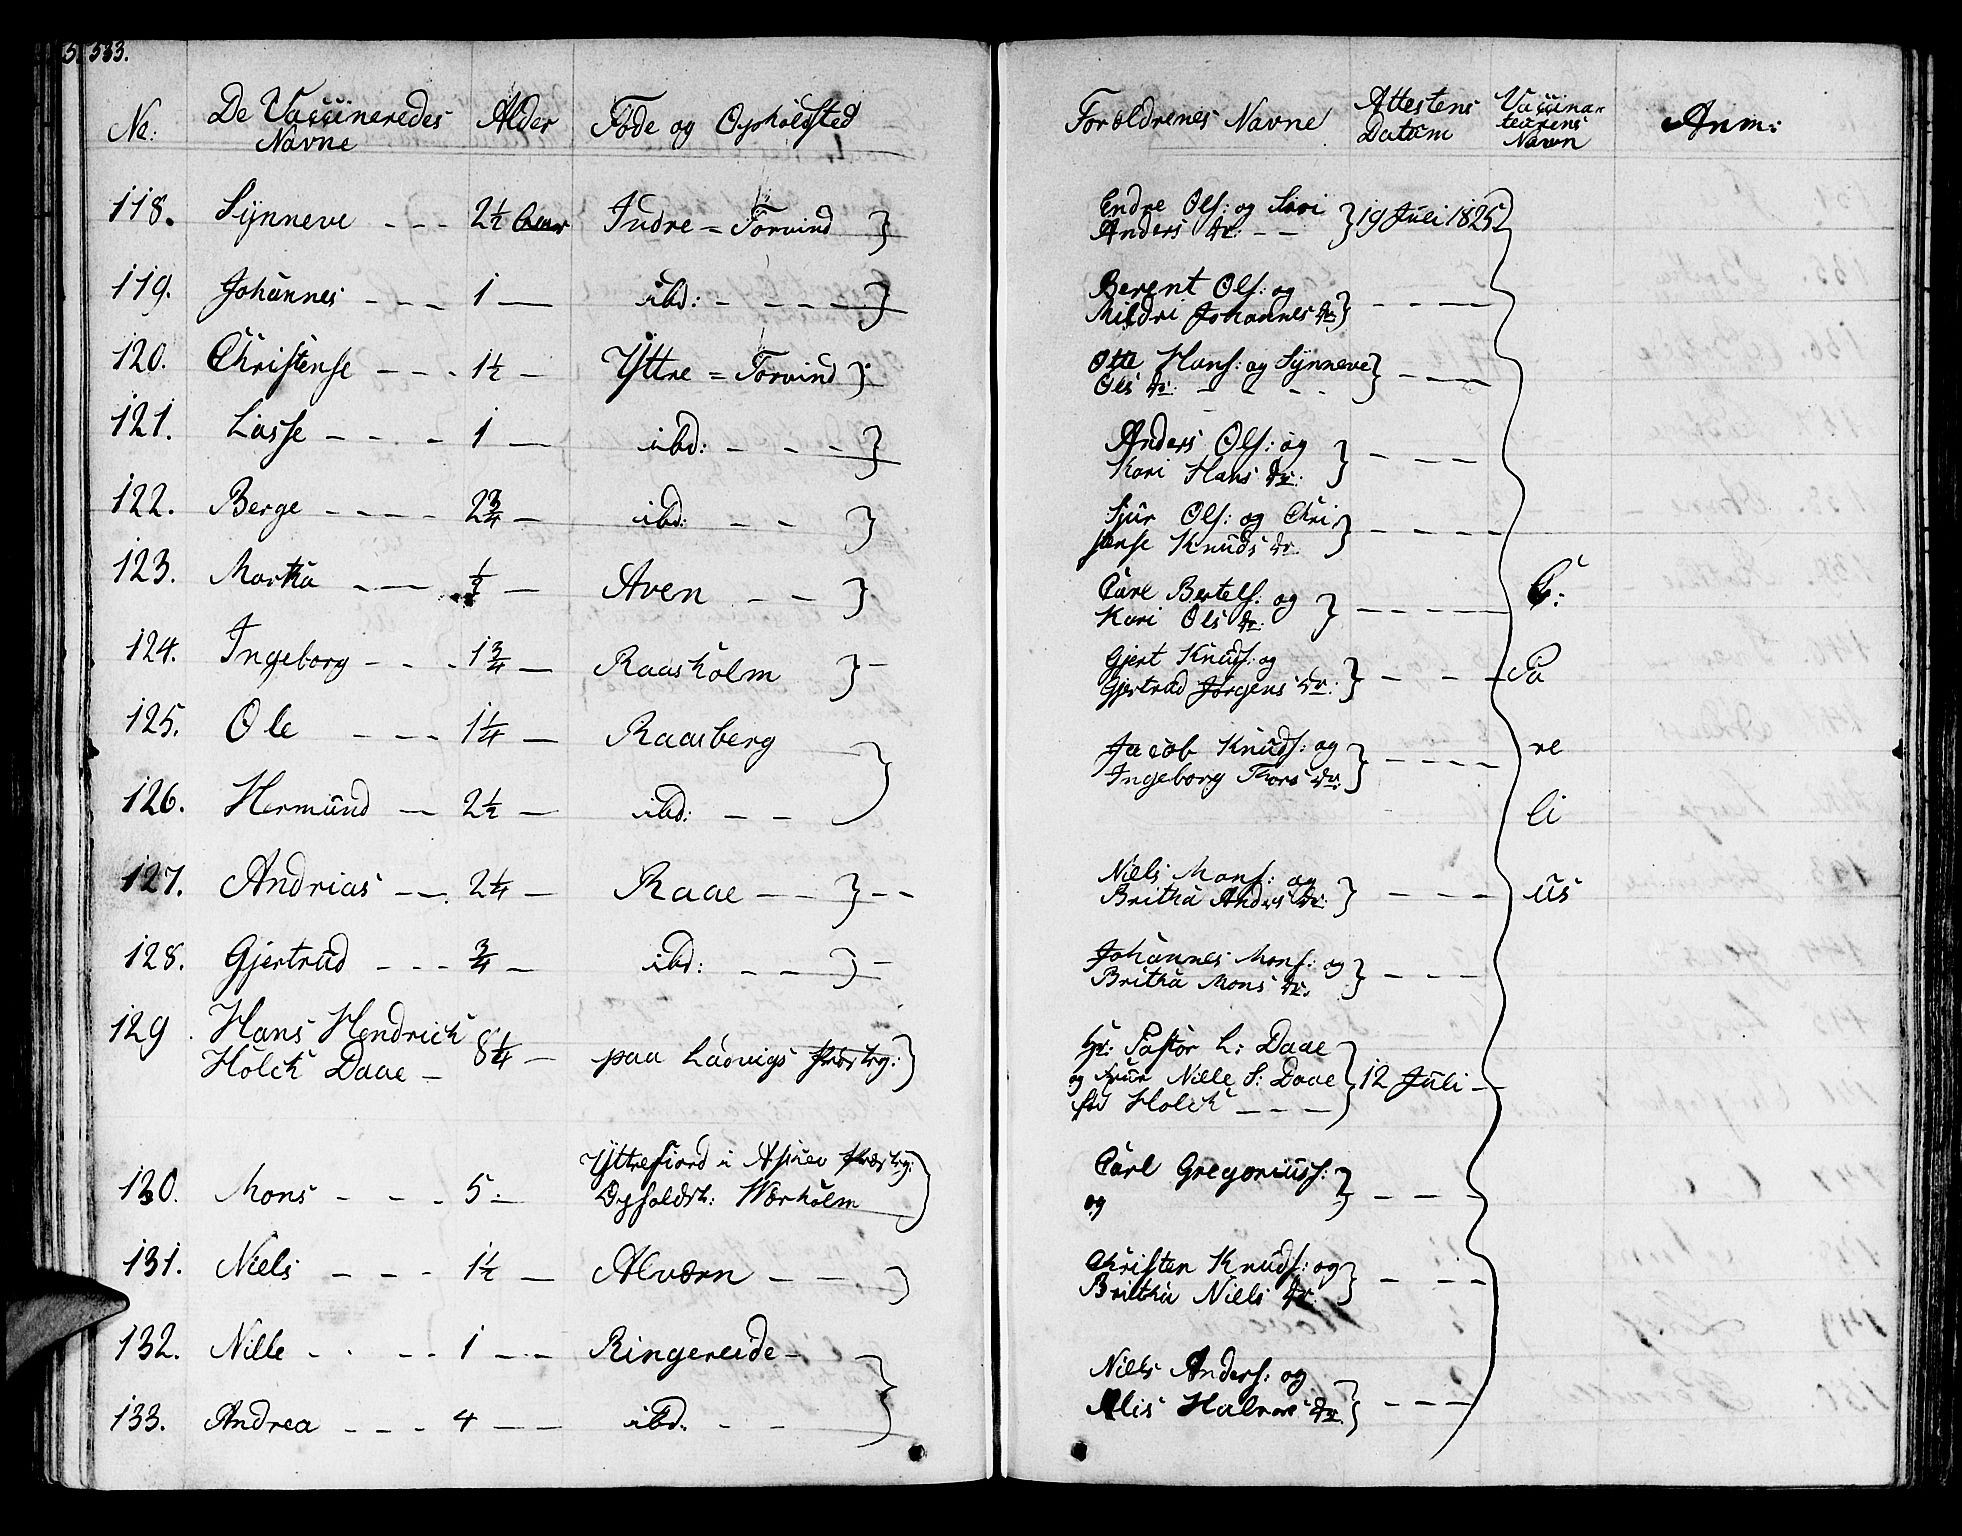 533.
No: De Vaccineredes Navne Alder Føde og Opholdsted Forældrenes Navne Attestens Datum Vaccinateurens Navn Anm:
118. Synneve - - - 2½ Aar Indre = Torvind } Endre Ols: og Siri
Anders dr: - - } 19 Juli 1825
119. Johannes - - - 1 — ibd: - - - - } Berent Ols: og
Mildri Johannes dr } - - - -
120. Christense - - - 1½ - Yttre = Torvind } Otte Hans: og Synneve
Ols dr: - - - - } - - -
121. Lasse - - - - 1 — ibd: - - - } Anders Ols: og
Kari Hans dr: } - - - -
122. Berge - - - - 2¾ - ibd: - - } Sjur Ols: og Chri
stense Knuds dr. } - - - -
123. Martha - - - ½ - Aven - - } Carl Bertels: og
Kari Ols dr: } - - - - C:
124. Ingeborg - - - 1¾ - Raasholm } - Gjert Knuds: og
Gjertrud Jørgens dr: } - - - Pa
125. Ole - - - 1¼ - Raasberg } Jacob Knuds: og
Ingeborg Thors dr: } - - - - re
126. Hermund - - 2½ - ibd: - - li
127. Andrias - - 2¼ - Raae - - } - - Niels Mons: og
Britha Anders dr: } - - - - us
128. Gjertrud - - - ¾ - ibd: - - } - Johannes Mons: og
Britha Mons dr. } - - - -
129. Hans Hendrich
Holck Daae - 8¼ - paa Ladvigs Præsteg: } Hr: Pastor L: Daae
og Frue Nille S: Daae } 12 Juli -
fød Holck - - -
130. Mons - - - 5 - Yttrefiord i Præsteg:
Opholdst: Værholm } Carl Gregoriuss:
og } - - -
131. Niels - - - 1½ - Alværn - - } Christen Knuds: og
Britha Niels dr: } - - -
132. Nille - - - - 1 - - Ringereide -
133. Andrea - - - 4 - - ibd. - - } Niels Anders: og
Alis Halvors dr. } - - -